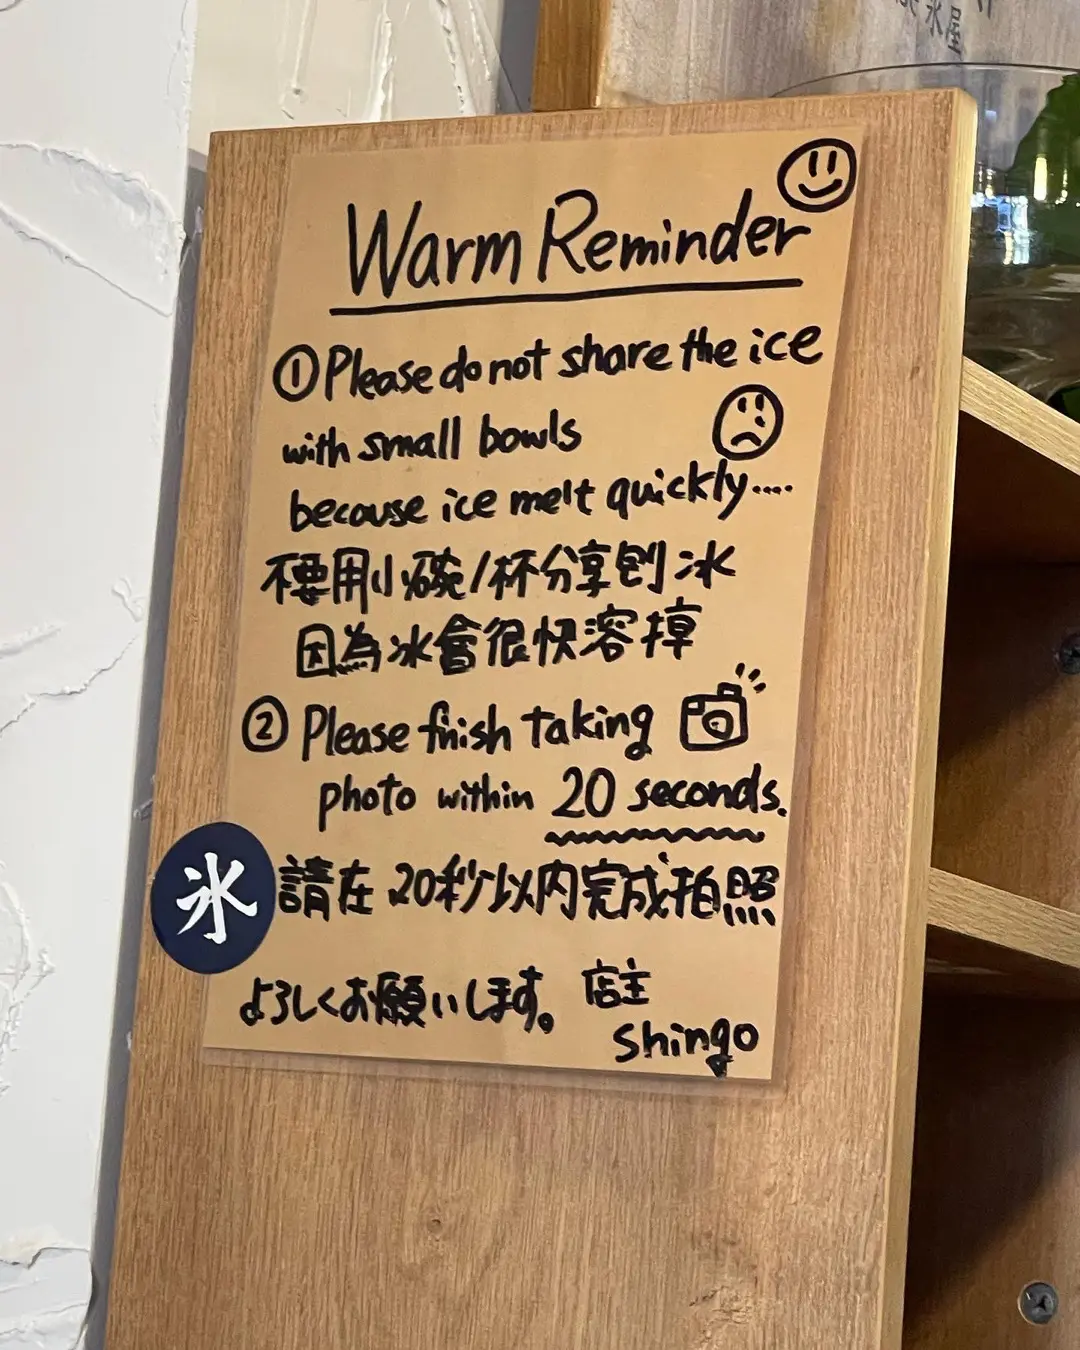 氷屋
Warm Reminder
① Please do not share the ice
with small bowls
because ice melt quickly....
不要用小碗/杯分享刨冰
因為冰會很快溶掉
② Please finish taking
photo within 20 seconds.
氷
請在 20秒以内完成拍照
よろしくお願いします。 店主
shingo